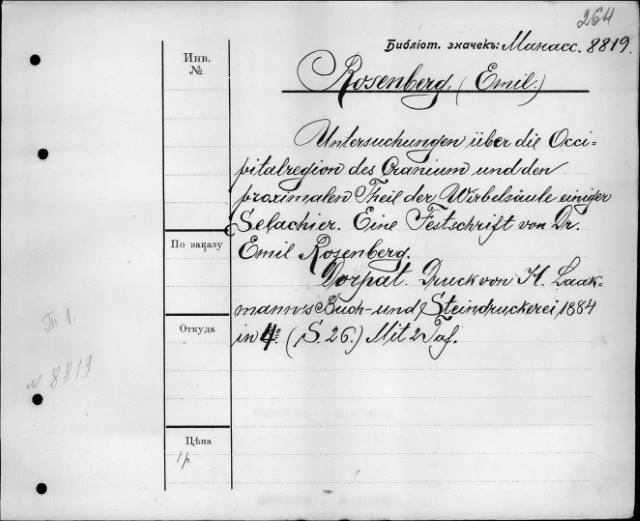 264
Библіот. значекъ: Манасс. 8819.
Инв.
№
Rosenberg, (Emil.)
Untersuchungen über die Occi=
pitalregion des Cranium und den
proximalen Theil der Wirbelsäule einiger
Selachier. Eine Festschrift von Dr.
По заказу
Emil Rosenberg.
Dorpat. Druck von H. Laak=
manns Buch- und Steindruckerei, 1884
Откуда
in 4º. (S. 26.) Mit 2 Taf.
1.
№ 8819
Цѣна
1 р.